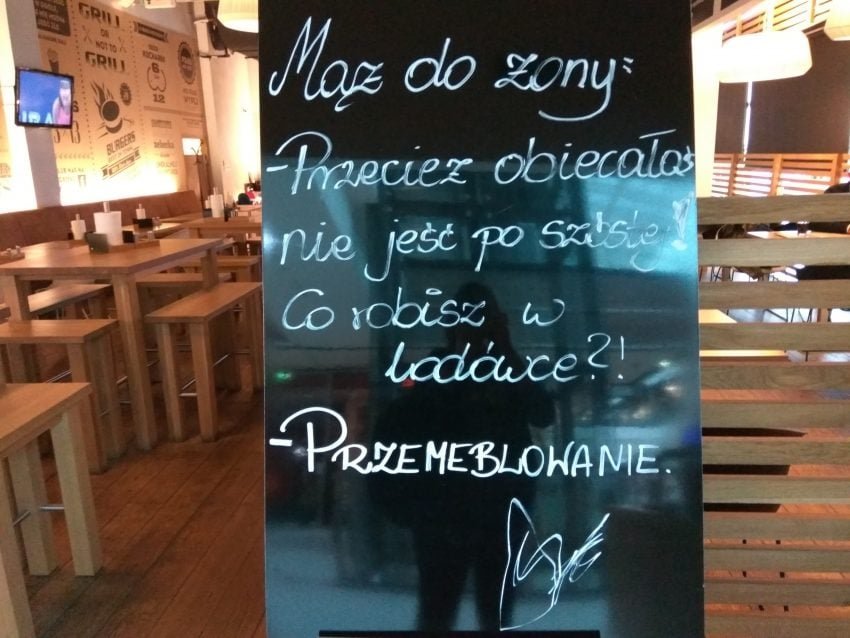 Mąż do żony:
- Przecież obiecałaś
nie jeść po szóstej!
Co robisz w
lodówce?!
- PRZEMEBLOWANIE.
GRILL
OR
NOT TO
GRILL
BURGERS
6
12